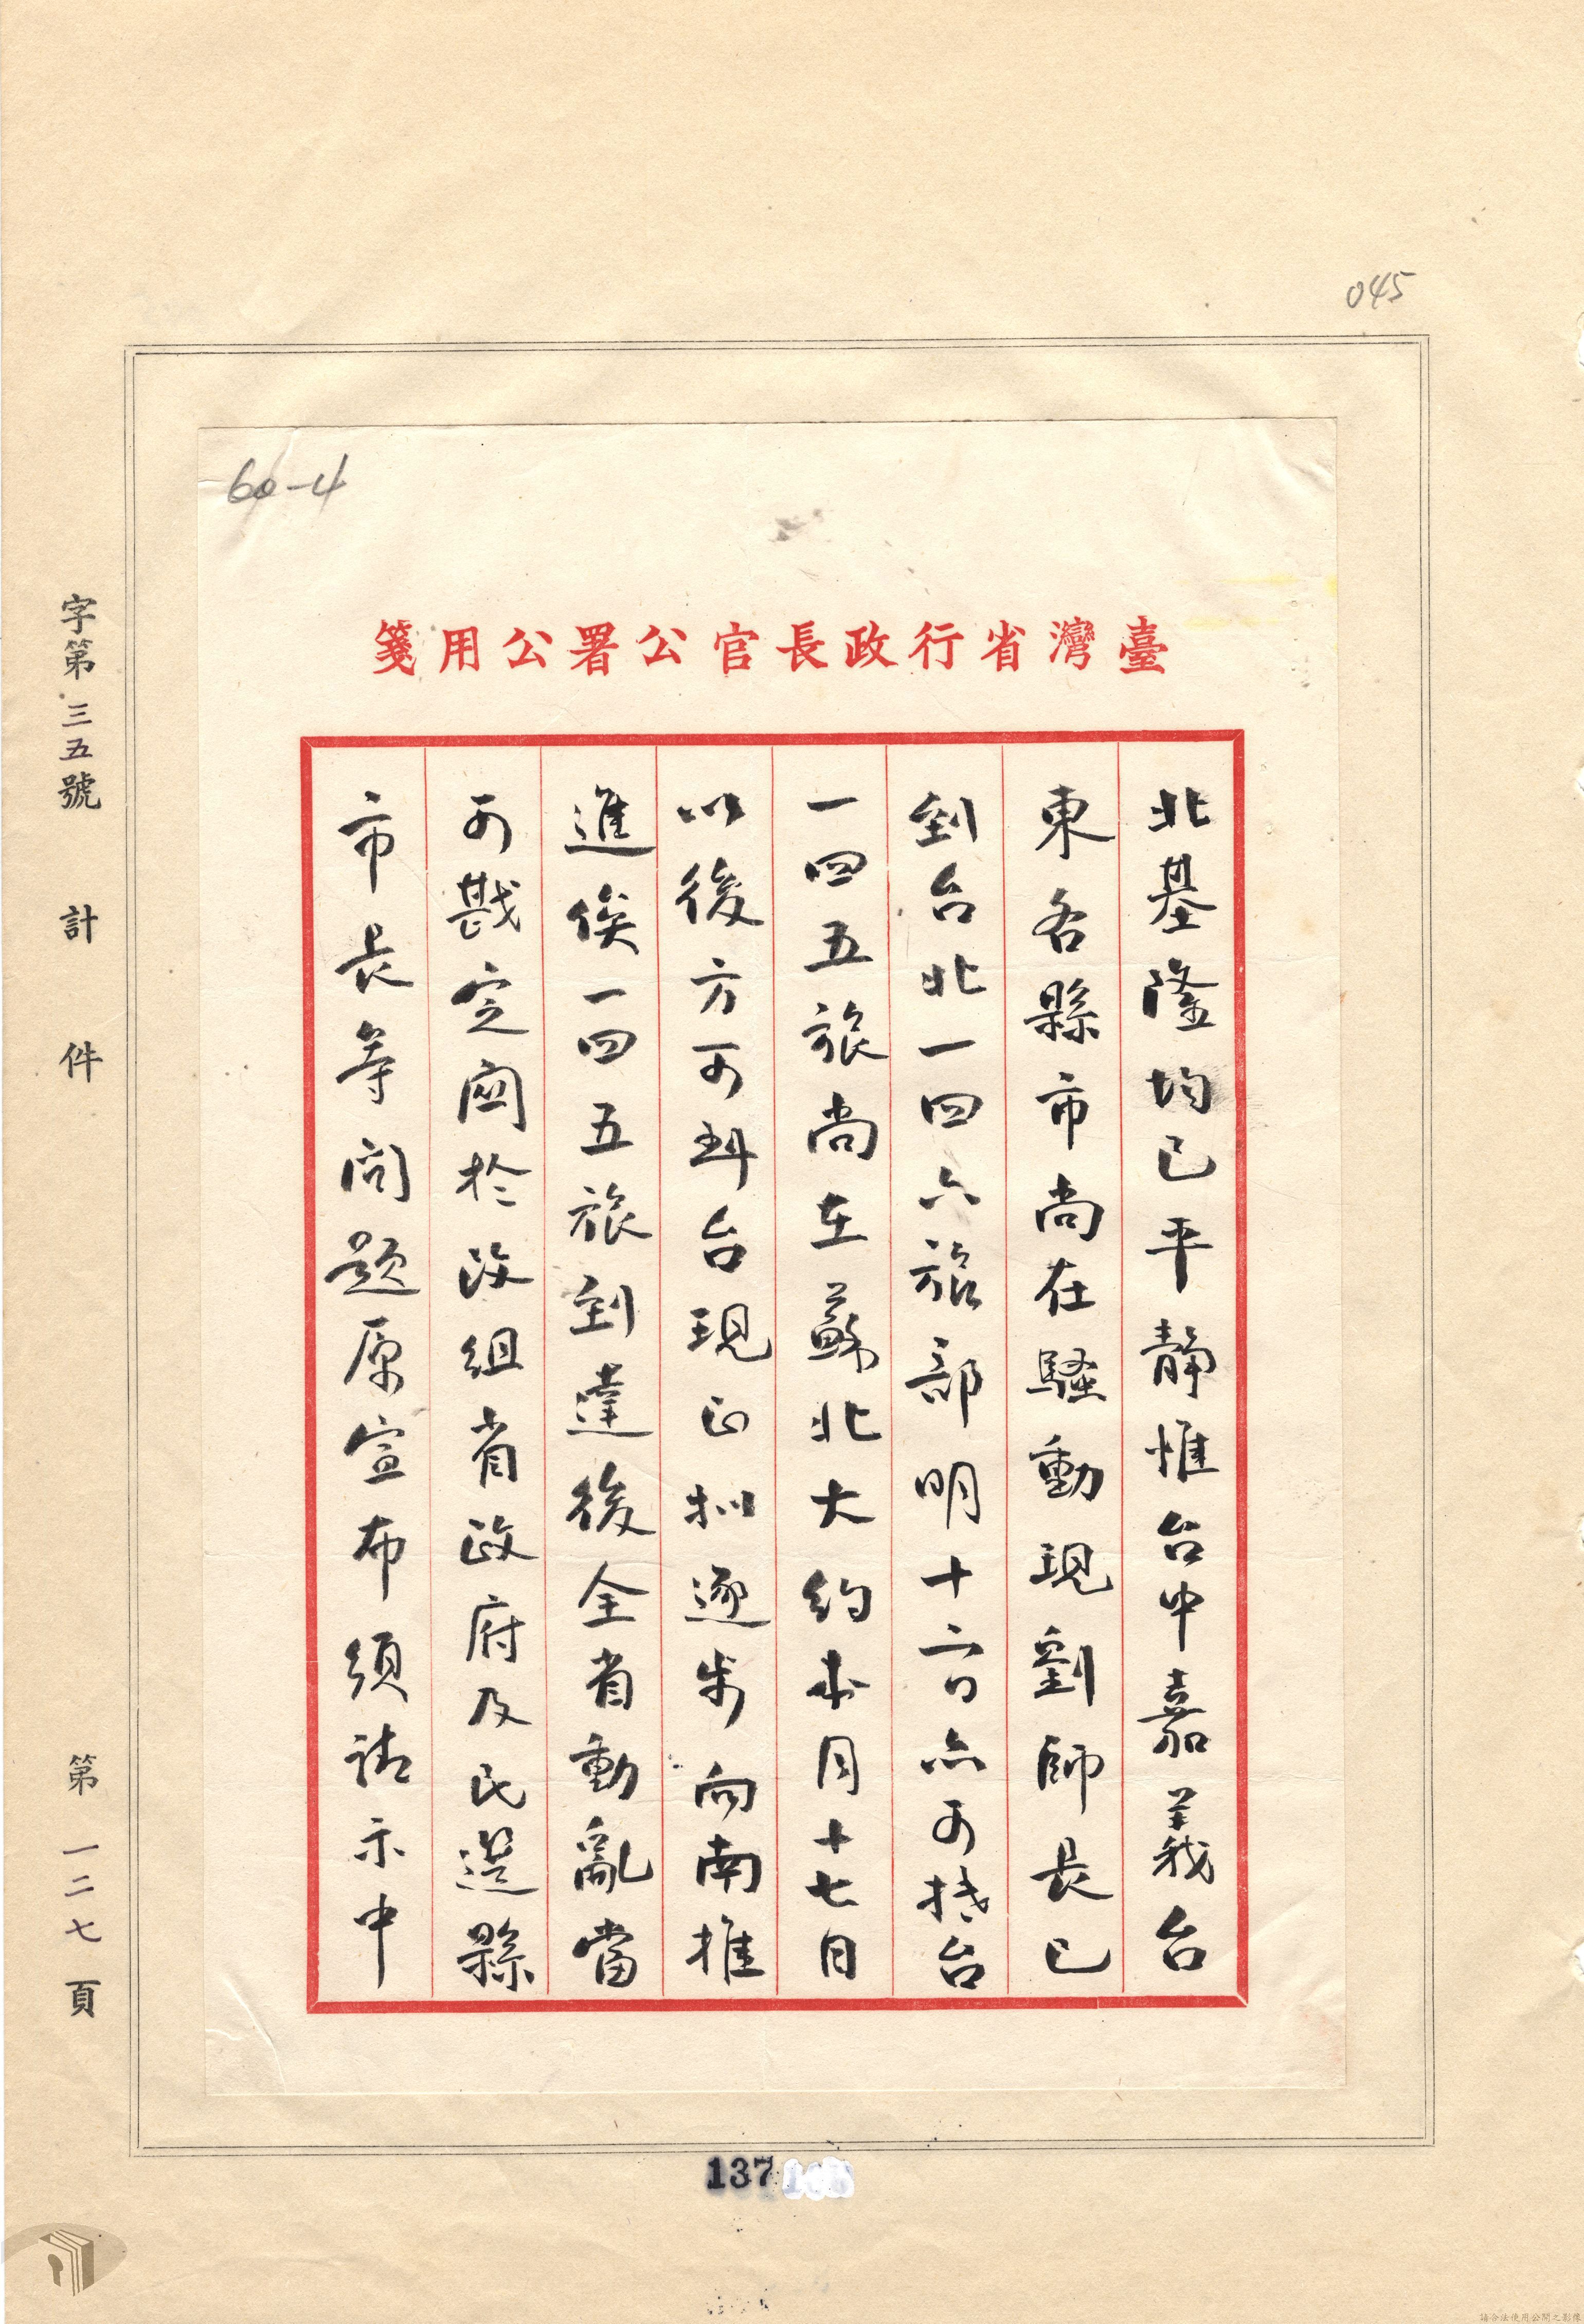 045
60-4
臺灣省行政長官公署公用箋
北基隆均已平靜惟台中嘉義台
東各縣市尚在騷動現劉師長已
到台北一四六旅部明十二日亦可抵台
一四五旅尚在蘇北大約本月十七日
以後方可到台現正擬逐步向南推
進俟一四五旅到達後全省動亂當
可戡定關於改組省政府及民選縣
市長等問題原宣布須請示中
字第三五號 計 件 第一二七頁
137
請合法使用公開之影像